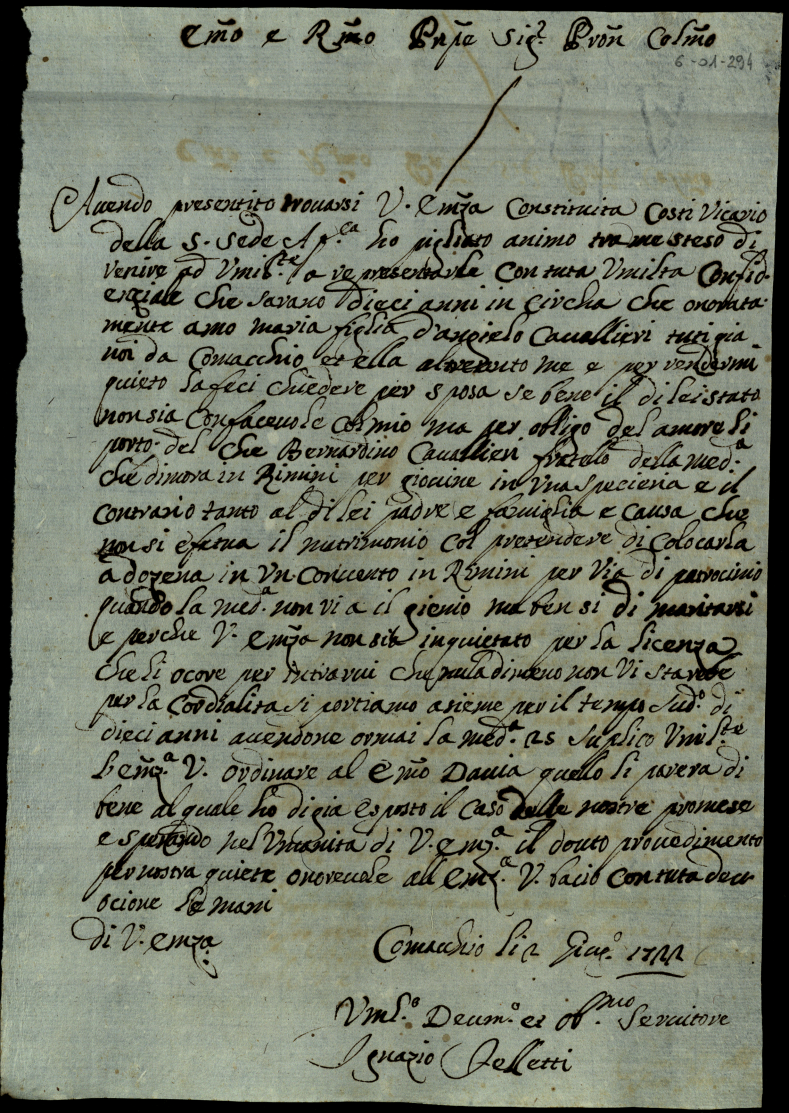 Em̃o e Rm̃o Pnp̃e Sig.r Pron̄ Colm̃o
6-01-294
Auendo presentito trouarsi V. Em̃za Constituita Costi Vicario
della S. Sede Ap.ca ho pigliato animo tra me steso di
venire ad Vmil.te a represertarle Con tuta Vmilta Confid-
enziale che sarano dieci anni in Circha che onorata-
mente amo maria figlia d'angielo Cauallieri tuti gia
noi da Comacchio et ella altretento me e per rendermi
quieto la feci chiedere per sposa se bene il di lei stato
non sia Confaceuole Col mio ma per obligo del amore li
porto. del che Bernardino Cauallieri fratello della med.a
che dimora in Rimini per giouine in Vna specieria e il
Contrario tanto al di lei padre e famiglia e Causa che
non si efetua il matrimonio Col pretendere di Colocarla
a dozena in Vn Conuento in Rimini per Via di patrocinio
quando la med.a non vi a il gienio ma ben si di maritarsi
e perche V. Em̃za non sia inquietato per la licenza
che li ocore per intrarui che nula dimeno non Vi starebe
per la Cordialita si portiamo asieme per il tempo sud.o di
dieci anni auendone ormai la med.a 25 suplico Vmil.te
l'em̃.a V. ordinare al Em̃o Dauia quello li parera di
bene al quale ho di gia esposto il Caso delle nostre promese
e sperando nel Vmanita di V. emz.a il douto prouedimento
per nostra quiete onoreuole all Emz.a V. bacio Con tuta deu-
ocione le mani
di V. Emza
Comacchio li 2 Giug.o 1722
Vml.o Deum.o et ob.mo Seruitore
Ignazio Felletti